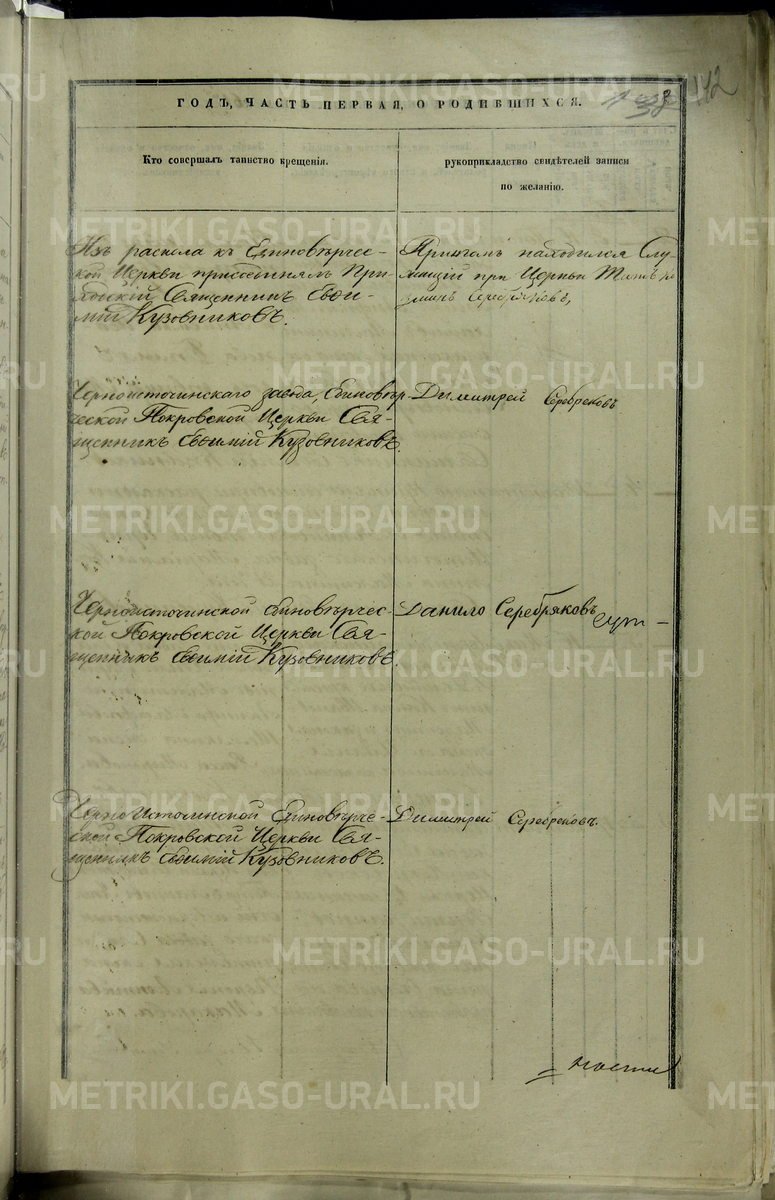 142
ГОДЪ, ЧАСТЬ ПЕРВАЯ, О РОДИВШИХСЯ.
Кто совершалъ таинство крещенія.
рукоприкладство свидѣтелей записи
по желанію.
Изъ раскола къ Единовѣрчес-
кой Церкви присоединялъ При-
ходскій Священникъ Евѳи-
мій Кузовниковъ.
При находился Слу-
жащій при Церкви Титъ
Серебряковъ,
Черноисточинскаго завода, Единовѣр-
ческой Покровской Церкви Свя-
щенникъ Евѳимій Кузовниковъ.
Димитрей Серебреновъ
Черноисточинской Единовѣрчес-
кой Покровской Церкви Свя-
щенникъ Евѳимій Кузовниковъ.
Данило Серебряковъ
Черно Источинской Единовѣрче-
ской Покровской Церкви Свя-
щенникъ Евѳимій Кузовниковъ.
Димитрей Серебреновъ.
METRIKI.GASO-URAL.RU